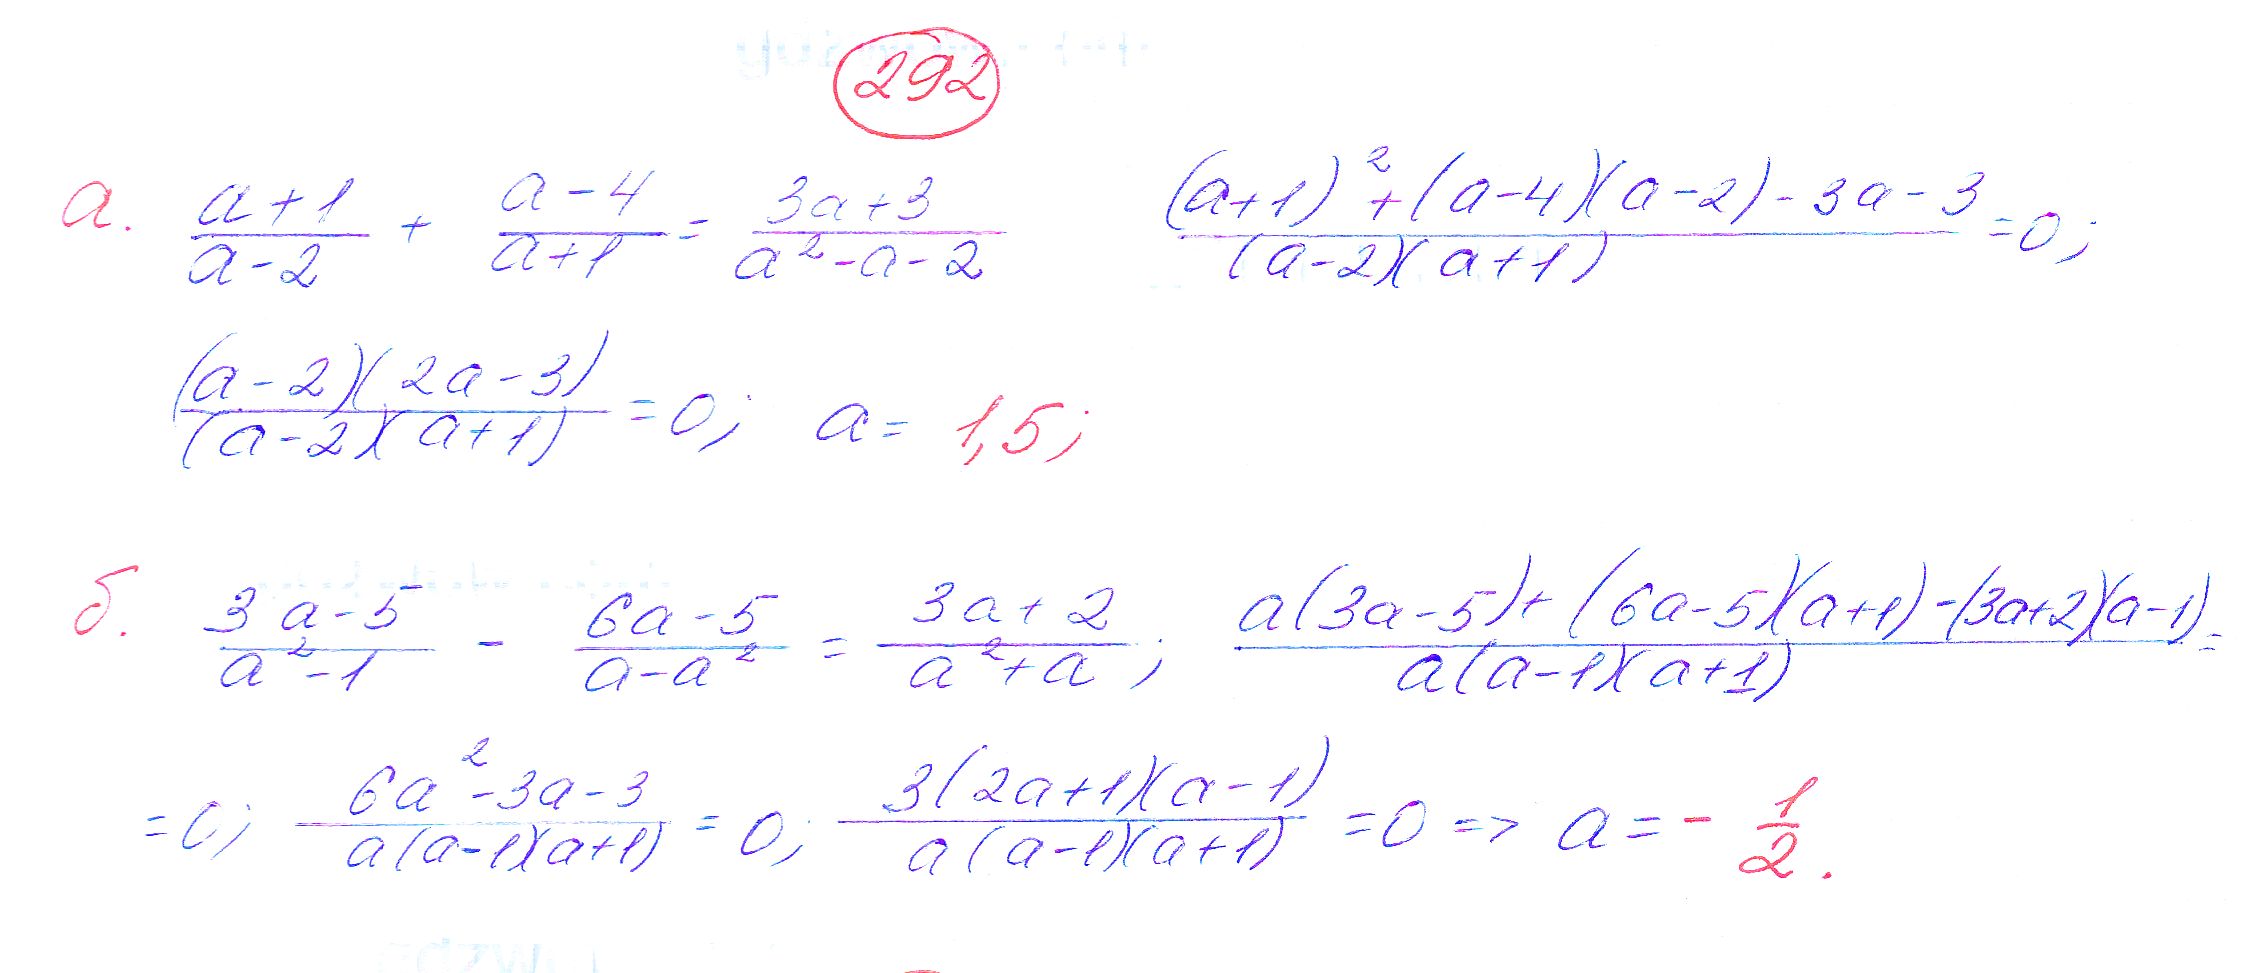 292
а. (a+1)/(a-2) + (a-4)/(a+1) = (3a+3)/(a²-a-2) ((a+1)²+(a-4)(a-2)-3a-3)/((a-2)(a+1)) =0;
((a-2)(2a-3))/((a-2)(a+1)) =0; a= 1,5;
б. (3a-5)/(a²-1) - (6a-5)/(a-a²) = (3a+2)/(a²+a); (a(3a-5)+(6a-5)(a+1)-(3a+2)(a-1))/(a(a-1)(a+1)) =
=0; (6a²-3a-3)/(a(a-1)(a+1)) = 0; (3(2a+1)(a-1))/(a(a-1)(a+1)) =0 => a=- 1/2.